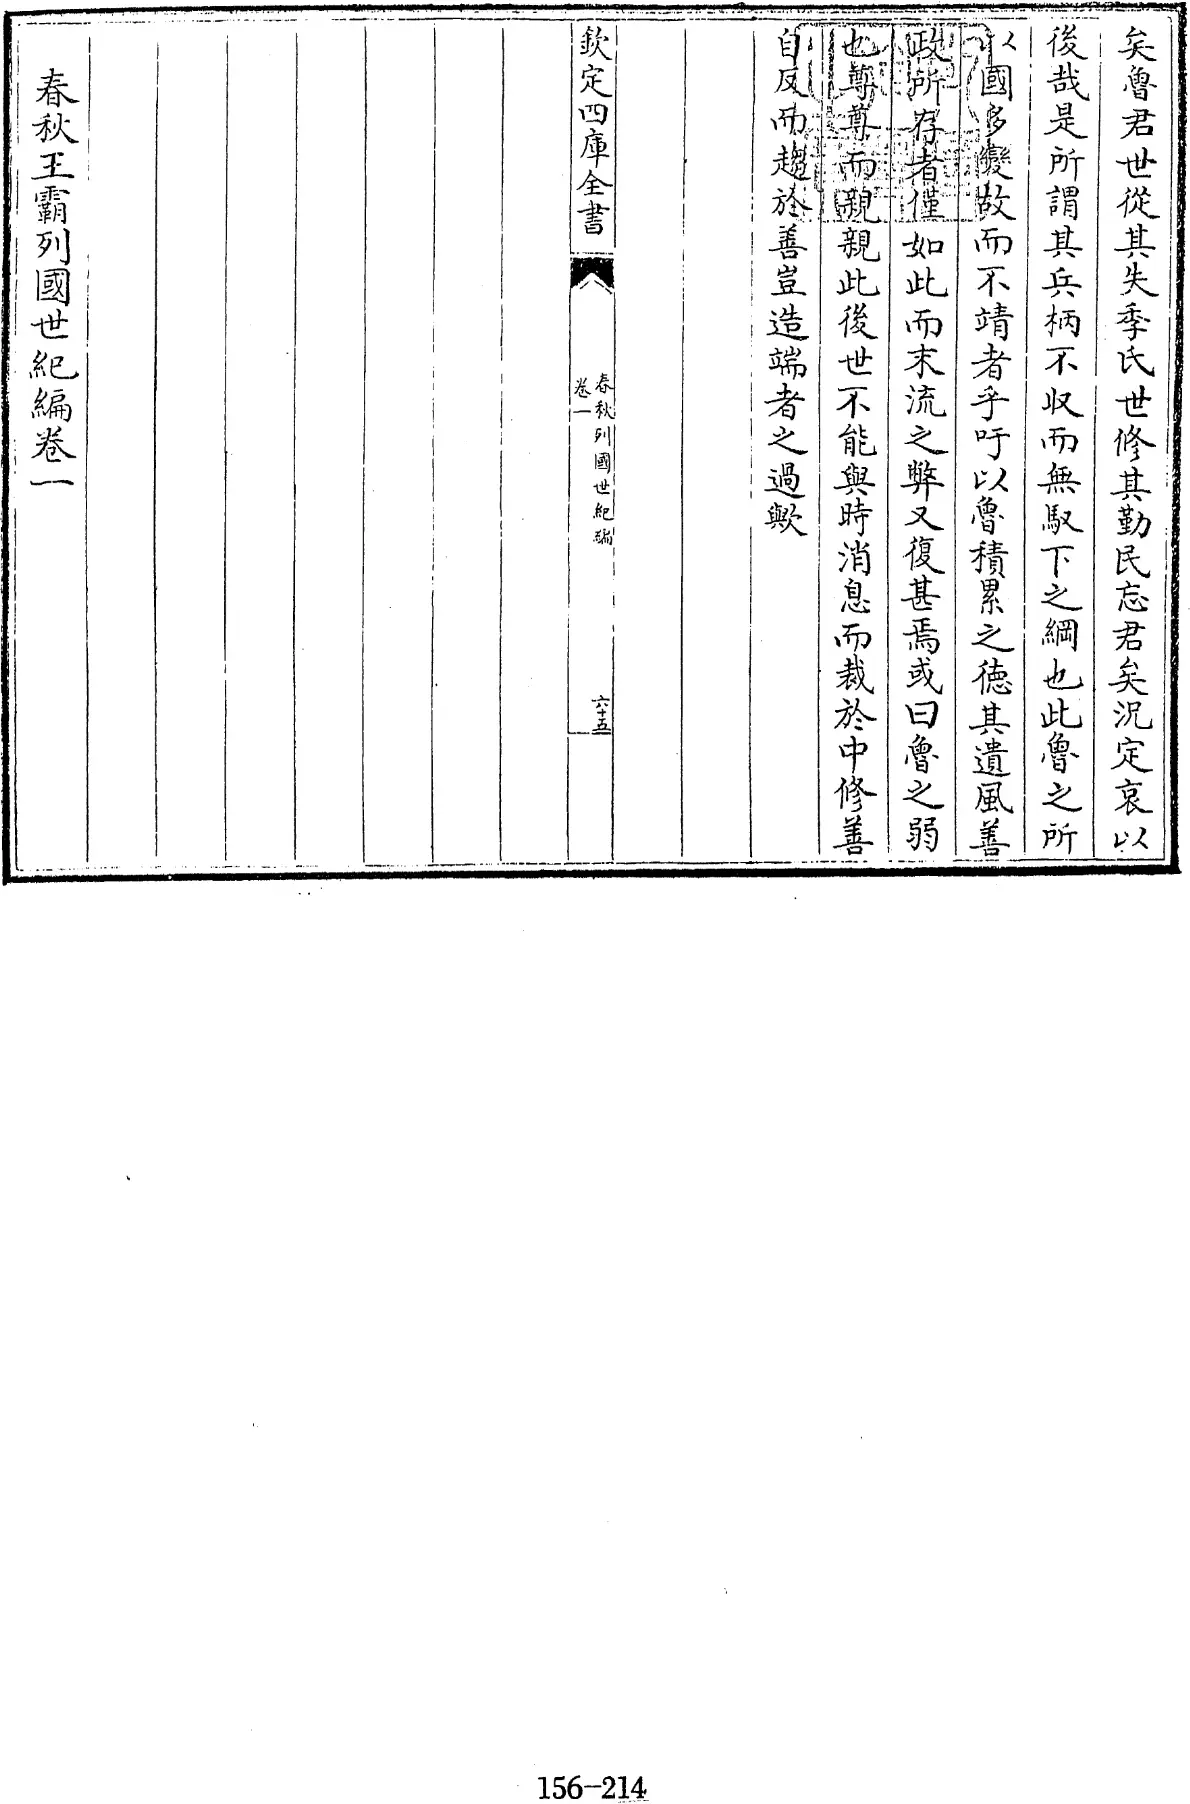 矣魯君世從其失季氏世修其勤民忘君矣況定哀以
後哉是所謂其兵柄不收而無馭下之綱也此魯之所
以國多變故而不靖者乎吁以魯積累之德其遺風善
政所存者僅如此而末流之弊又復甚焉或曰魯之弱
也尊尊而親親此後世不能與時消息而裁於中修善
自反而趨於善豈造端者之過歟
欽定四庫全書
春秋列國世紀編
卷一
六十五
春秋王霸列國世紀編卷一
156-214